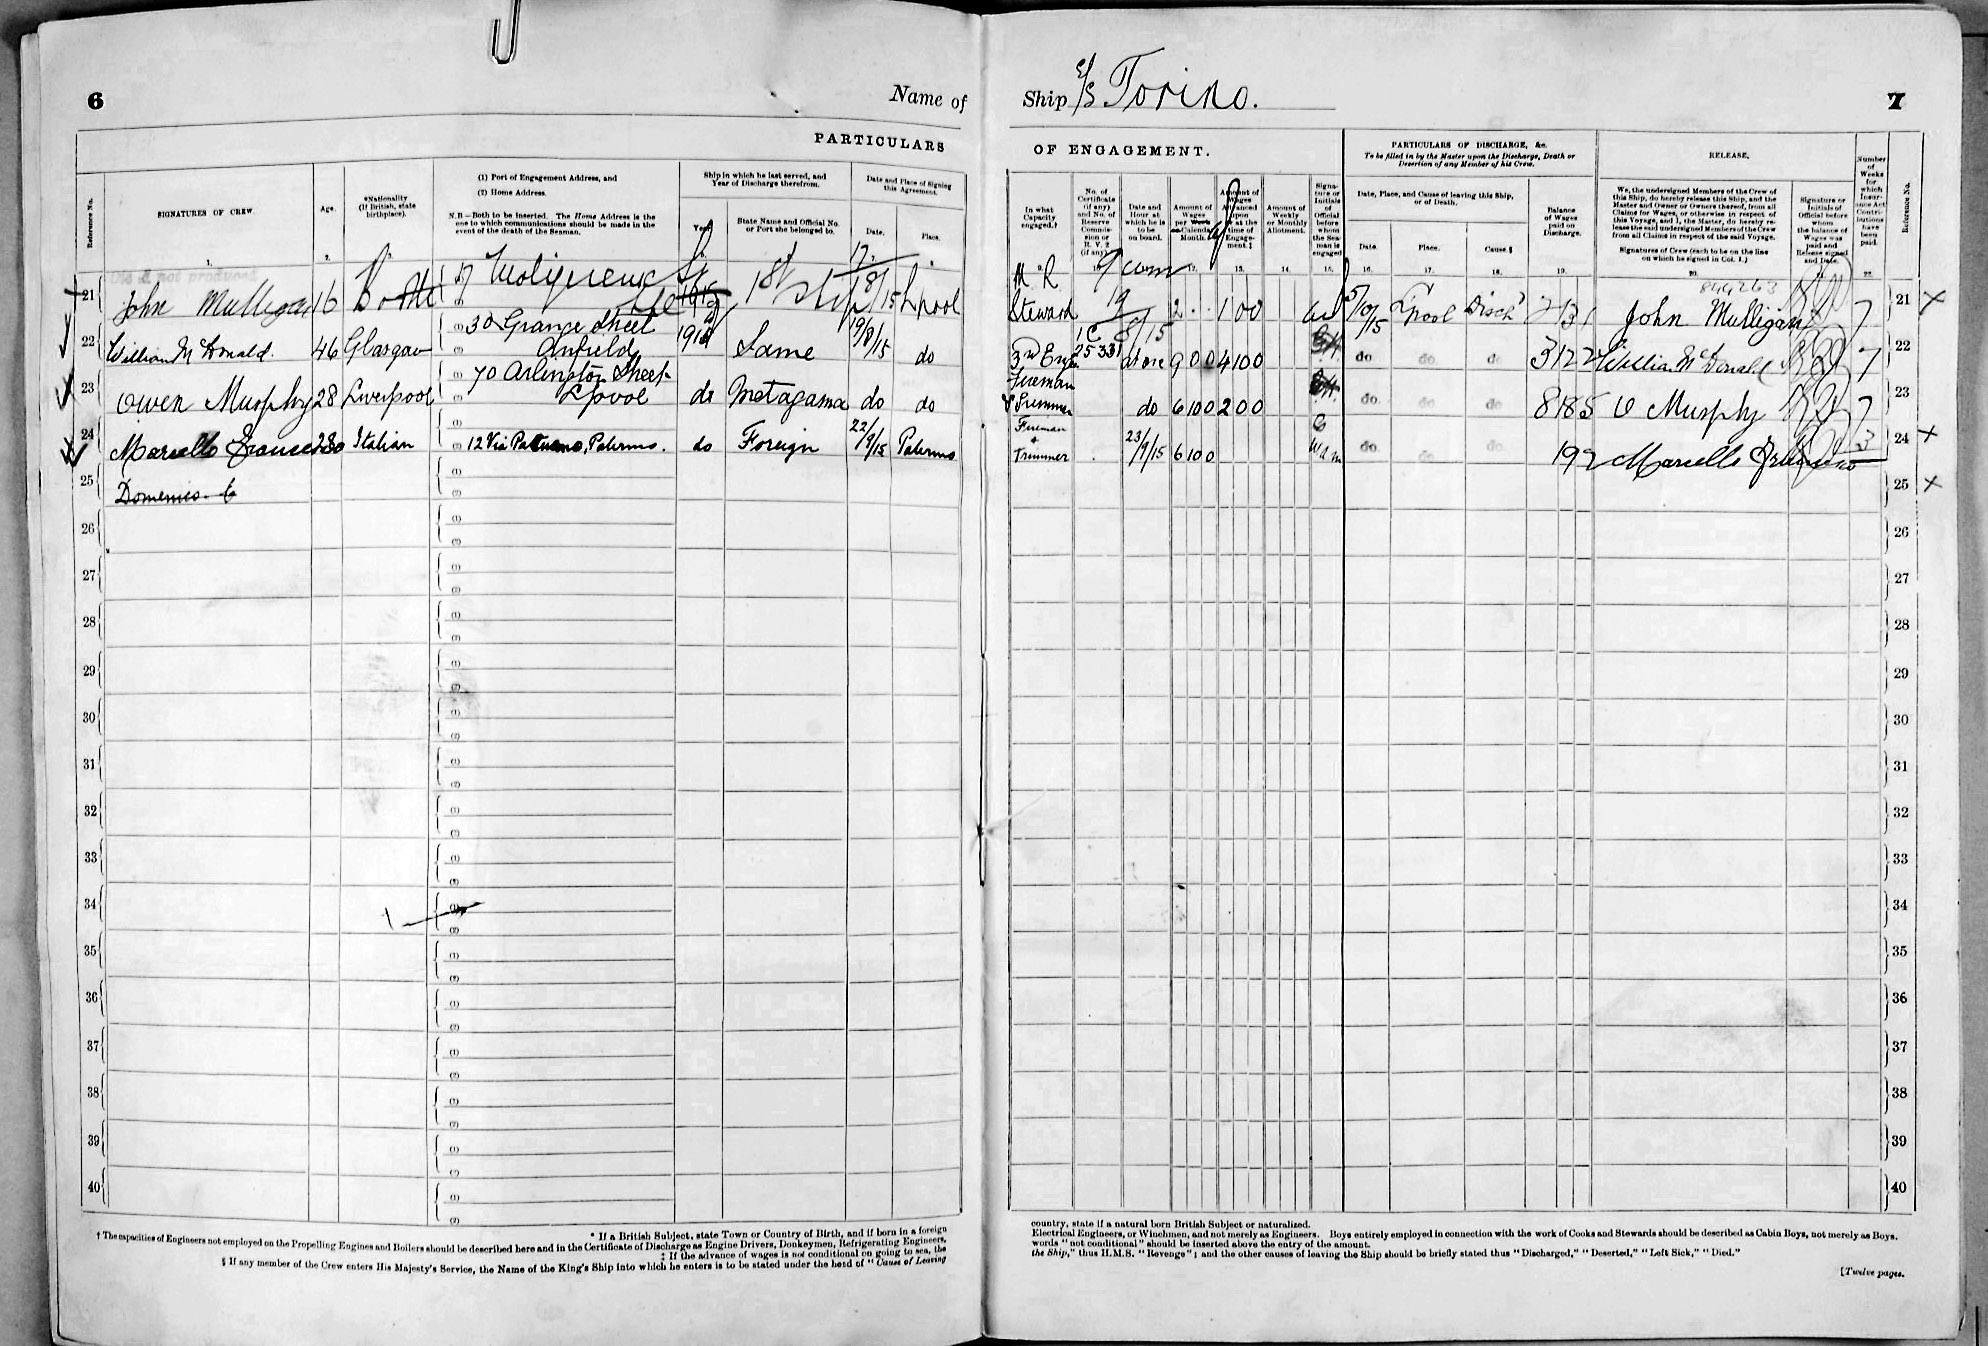 6
Name of
PARTICULARS
Reference No.
SIGNATURES OF CREW.
Age.
*Nationality
(If British, state
birthplace).
(1) Port of Engagement Address, and
(2) Home Address.
N.B.—Both to be inserted. The Home Address is the
one to which communications should be made in the
event of the death of the Seaman.
Ship in which he last served, and
Year of Discharge therefrom.
Year.
State Name and Official No.
or Port she belonged to.
Date and Place of Signing
this Agreement.
Date.
Place.
21 John Mulligan 16 Bootle 1st Ship 18/15 Lpool
22 William McDonald. 46 Glasgow 30 Grange Street Anfield Same 19/8/15 do
23 Owen Murphy 28 Liverpool 70 Arlington Street Lpool do Metagama do do
24 Marcello Italian 12 Via Palermo. do Foreign 22/9/15 Palermo
25 Domenico
26
27
28
29
30
31
32
33
34
35
36
37
38
39
40
* If a British Subject, state Town or Country of Birth, and if born in a foreign
† The capacities of Engineers not employed on the Propelling Engines and Boilers should be described here and in the Certificate of Discharge as Engine Drivers, Donkeymen, Refrigerating Engineers,
‡ If the advance of wages is not conditional on going to sea, the
§ If any member of the Crew enters His Majesty's Service, the Name of the King's Ship into which he enters is to be stated under the head of "Cause of Leaving
Ship S/S Torino.
7
OF ENGAGEMENT.
In what
Capacity
engaged.†
No. of
Certificate
(if any)
and No. of
Reserve
Commis-
sion or
R.V. 2
(if any)
Date and
Hour at
which he is
to be
on board.
Amount of
Wages
per Week
or Calendar
Month.
Amount of
Wages
Advanced
upon
or at the
time of
Engage-
ment.‡
Amount of
Weekly
or Monthly
Allotment.
Signa-
ture or
Initials
of
Official
before
whom
the Sea-
man is
engaged
PARTICULARS OF DISCHARGE, &c.
To be filled in by the Master upon the Discharge, Death or
Desertion of any Member of his Crew.
Date, Place, and Cause of leaving this Ship,
or of Death.
Date.
Place.
Cause.§
Balance
of Wages
paid on
Discharge.
RELEASE.
We, the undersigned Members of the Crew of
this Ship, do hereby release this Ship, and the
Master and Owner or Owners thereof, from all
Claims for Wages, or otherwise in respect of
this Voyage, and I, the Master, do hereby re-
lease the said undersigned Members of the Crew
from all Claims in respect of the said Voyage.
Signatures of Crew (each to be on the line
on which he signed in Col. 1.)
Signature or
Initials of
Official before
whom
the balance of
Wages was
paid and
Release signed
and Date.
Number
of
Weeks
for
which
Insur-
ance Act
Contri-
butions
have
been
paid.
Reference No.
M. R.
Steward 19/8/15 2 1 0 0 5/10/15 Lpool Disch John Mulligan 7 21
3rd Eng 25331 at once 9 0 0 4 10 0 do do do 3 12 2 William McDonald 7 22
Fireman
& Trimmer do 6 10 0 2 0 0 do do do 8 18 5 O Murphy 7 23
Fireman
+
Trimmer 23/9/15 6 10 0 do do do 1 9 2 Marcello 3 24
25
26
27
28
29
30
31
32
33
34
35
36
37
38
39
40
country, state if a natural born British Subject or naturalized.
Electrical Engineers, or Winchmen, and not merely as Engineers. Boys entirely employed in connection with the work of Cooks and Stewards should be described as Cabin Boys, not merely as Boys.
words "not conditional" should be inserted above the entry of the amount.
the Ship," thus H.M.S. "Revenge"; and the other causes of leaving the Ship should be briefly stated thus "Discharged," "Deserted," "Left Sick," "Died."
[Twelve pages.